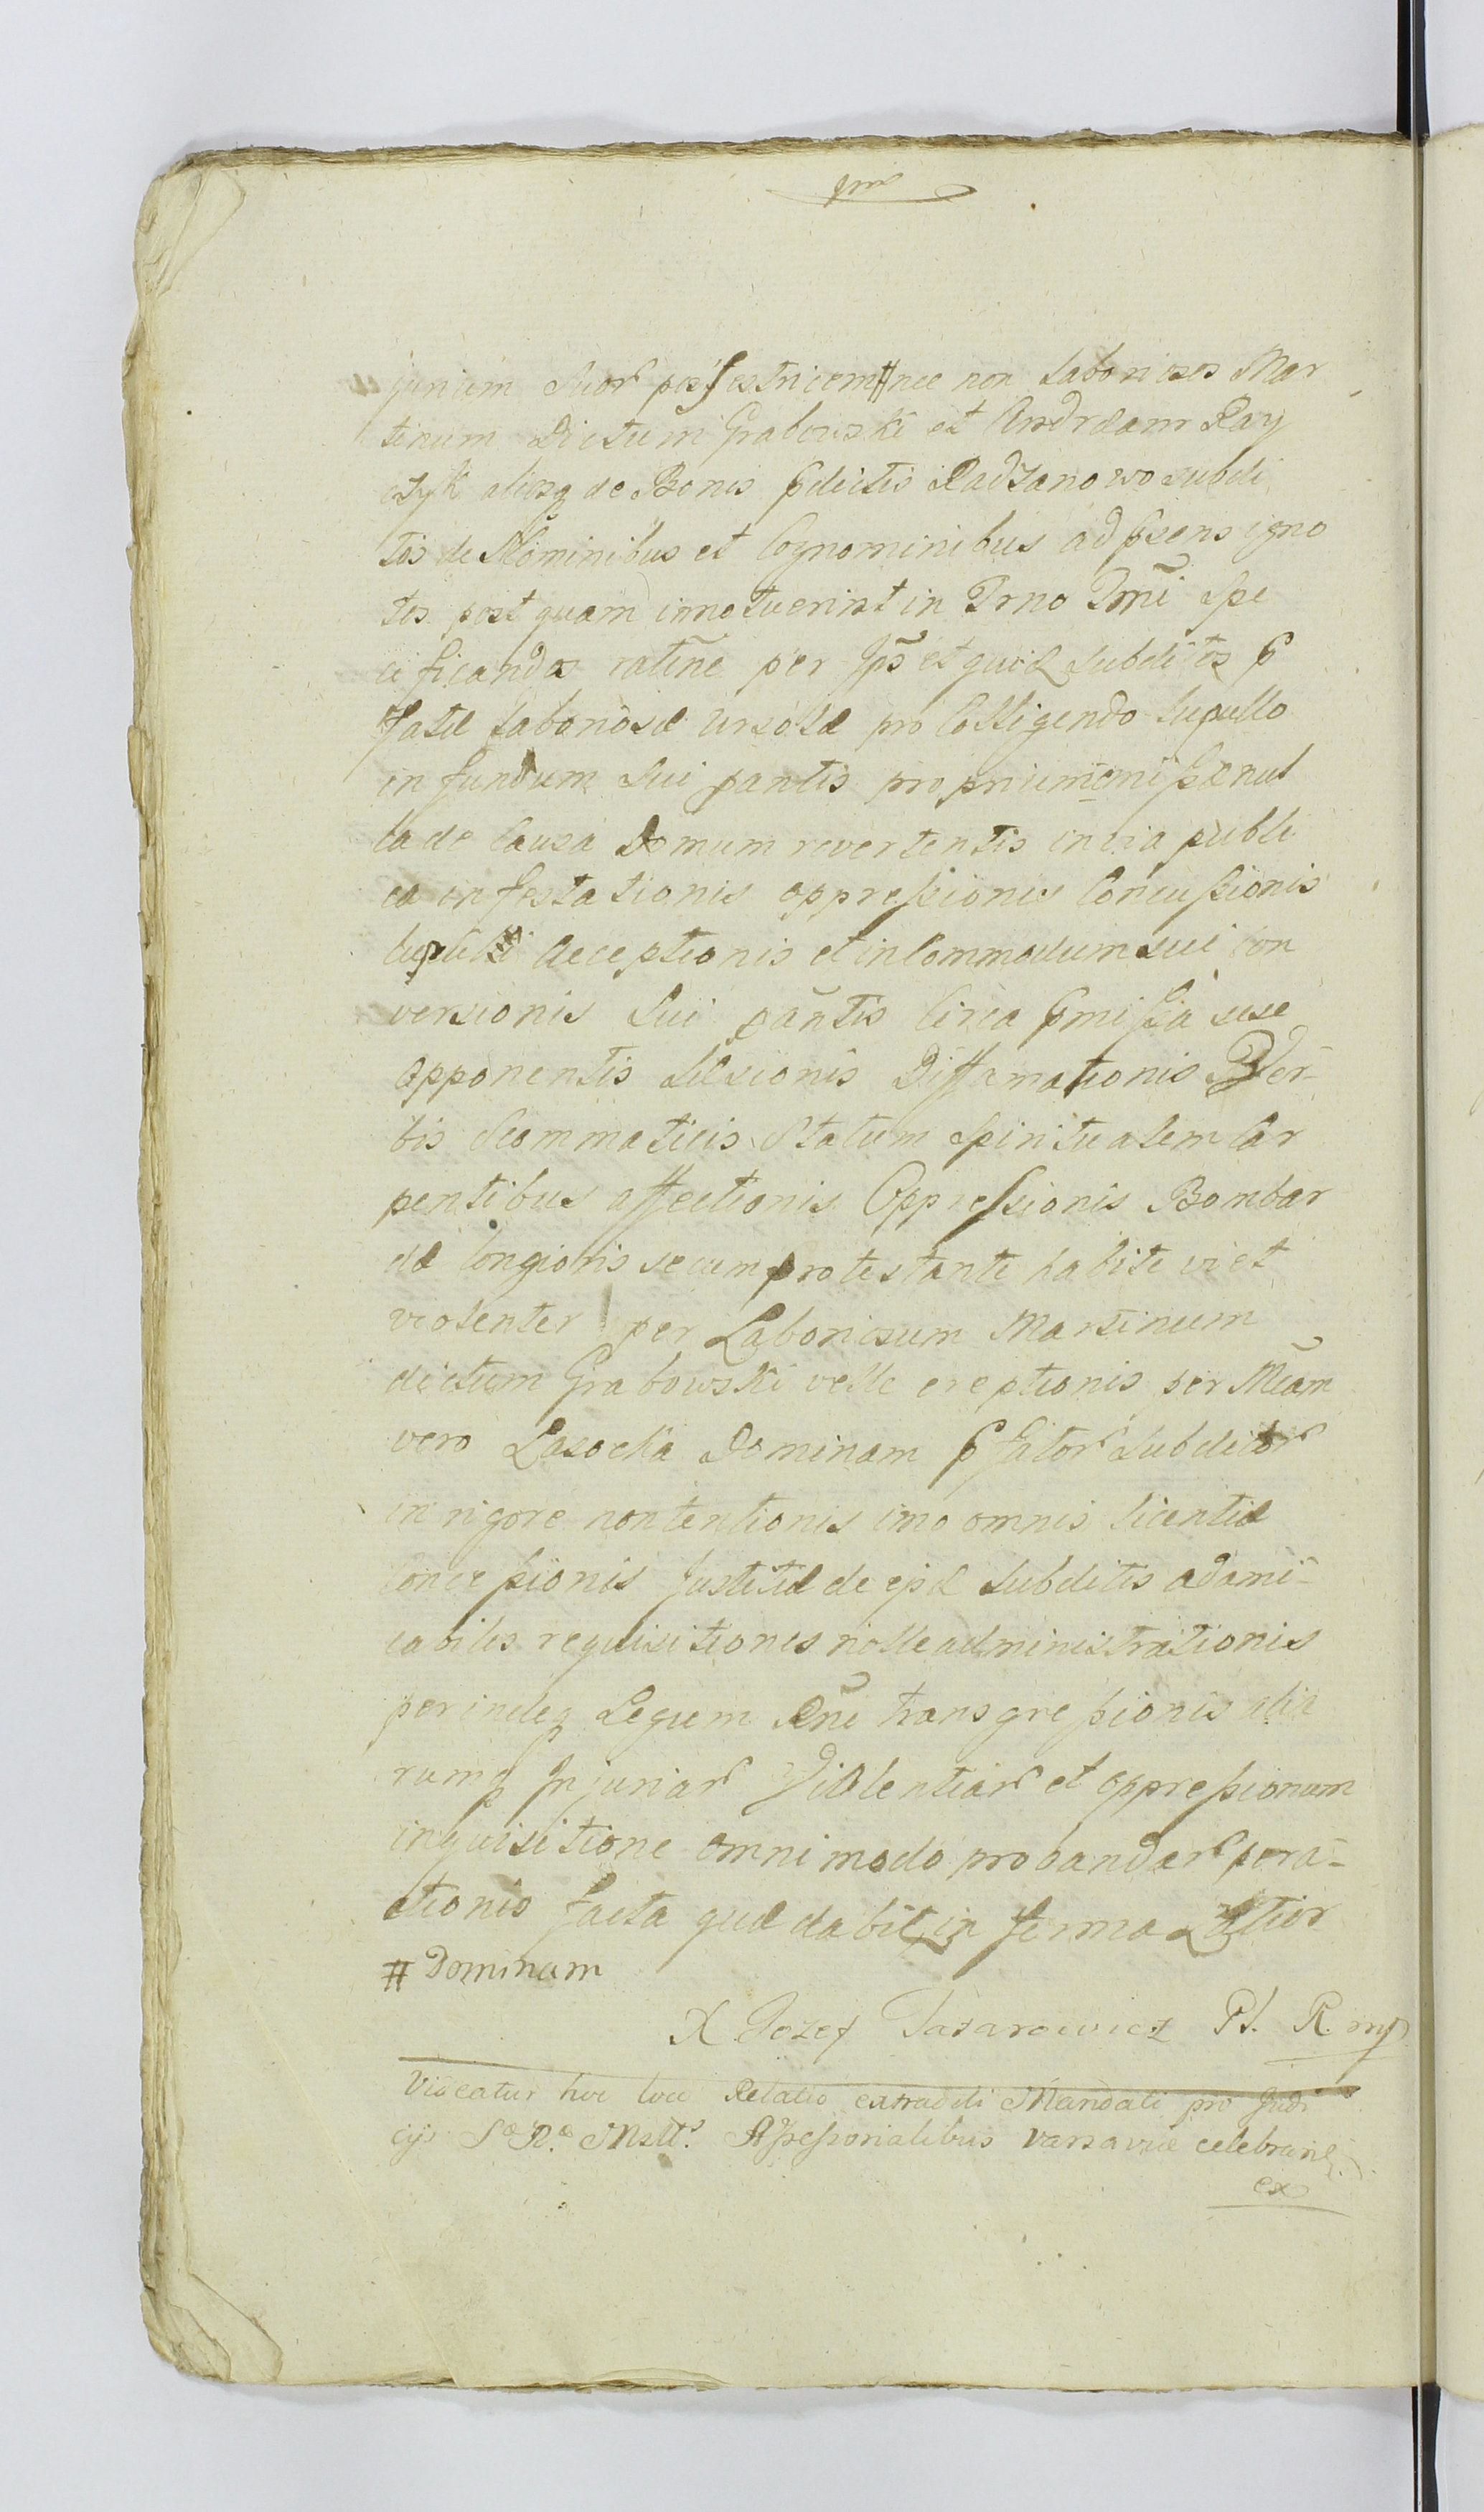 junium Suor possestricem # nec non Laboriosos Mar
tinum Dictum Grabowski et Andream Ray
czyk aliosq de Bonis pdictis Radzanowo subdi
tos de Nominibus et Cognominibus ad psens igno
tos post quam innotuerint in Trno Tmi Spe
cificandos ratine per Ips et quid Subditos p
fatae Laboriosae Ursolae pro Colligendo Lupullo
in fundum Sui pantis proprium missae nul
la de Causa Domum revertentis in via publi
ca infestationis oppressionis Concussionis
Lupuli Acceptionis et in Commodum sui con
versionis Sui pantis Circa pmissa sese
opponentis Laesionis Diffamationis Ver-
bis Scommaticis Statum Spiritualem Car
pentibus affectionis Oppressionis Bombar
dae longioris secum protestante habite vi et
violenter per Laboriosum Martinum
dictum Grabowski velle ereptionis per Mcam
vero Lasocka Dominam pfator Subditor
in rigore non tentionis imo omnis licentiae
concessionis Justitiae de ejsd Subditis ad ami-
cabiles requisitiones nolle administrationis
perindeq Legum Rni transgressionis alia
rumq Injuriar Violentiar et oppressionum
inquisitione omni modo probandar perà-
ctionis facta quae dabit in Termo Latior
# Dominam
X Jozef Tasarowicz Pl. R. mp
Videatur hoc loco Relatio extraditi Mandati pro Judi
cijs S. R. Mttis Assessorialibus Varsaviae celebran
ex